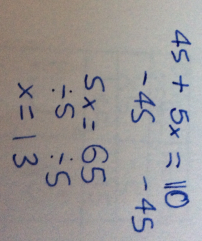 45 + 5x = 110
-45 -45
5x = 65
÷5 ÷5
x = 13